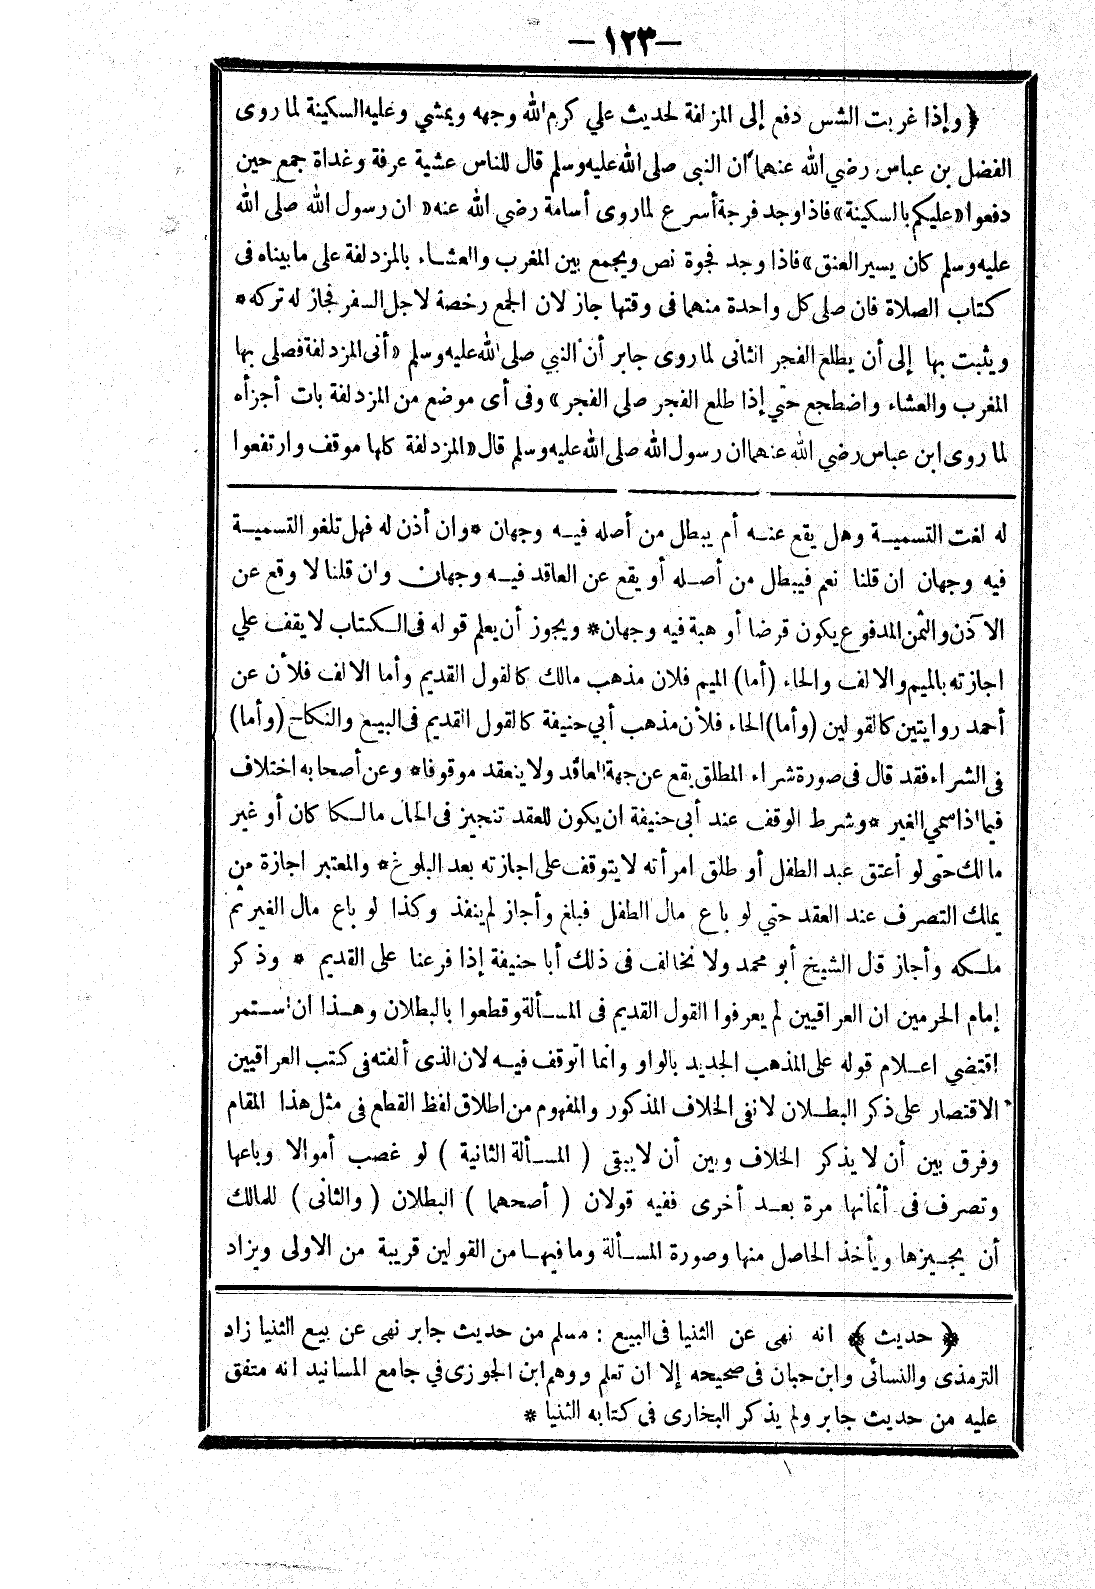 —١٢٣—
﴿ وإذا غربت الشس دفع إلى المزلفة لحديث علي كرم الله وجهه ويمشي وعليه السكينة لما روى
الفضل بن عباس رضي الله عنهما ان النبى صلى الله عليه وسلم قال للناس عشية عرفة وغداة جمع حين
دفعوا «عليكم بالسكينة» فاذا وجد فرجة أسرع لما روى أسامة رضي الله عنه « ان رسول الله صلى الله
عليه وسلم كان يسير العنق» فاذا وجد فجوة نص ويجمع بين المغرب والعشاء بالمزدلفة على ما بيناه فى
كتاب الصلاة فان صلى كل واحدة منهما فى وقتها جاز لان الجمع رخصة لاجل السفر فجاز له تركه *
ويثبت بها إلى أن يطلع الفجر الثانى لما روى جابر أن النبي صلى الله عليه وسلم «أتى المزدلفة فصلى بها
المغرب والعشاء واضطجع حتي إذا طلع الفجر صلى الفجر » وفى أى موضع من المزدلفة بات أجزأه
لما روى ابن عباس رضي الله عنهما ان رسول الله صلى الله عليه وسلم قال «المزدلفة كلها موقف وارتفعوا
له لغت التسمية وهل يقع عنه أم يبطل من أصله فيه وجهان * وان أذن له فهل تلغو التسمية
فيه وجهان ان قلنا نعم فيبطل من أصله أو يقع عن العاقد فيه وجهان وان قلنا لا وقع عن
الآذن والثمن المدفوع يكون قرضا أو هبة فيه وجهان * ويجوز أن يعلم قوله فى الكتاب لا يقف علي
اجازته بالميم والالف والحاء (أما) الميم فلان مذهب مالك كالقول القديم وأما الالف فلأن عن
أحمد روايتين كالقولين (وأما) الحاء فلأن مذهب أبي حنيفة كالقول القديم فى البيع والنكاح (وأما)
فى الشراء فقد قال فى صورة شراء المطلق يقع عن جهة العاقد ولا ينعقد موقوفا * وعن أصحابه اختلاف
فيما اذا سمي الغير * وشرط الوقف عند أبى حنيفة ان يكون للعقد تنجيز فى الحال مالكا كان أو غير
مالك حتى لو أعتق عبد الطفل أو طلق امرأته لا يتوقف على اجازته بعد البلوغ * والمعتبر اجازة من
يملك التصرف عند العقد حتي لو باع مال الطفل فبلغ وأجاز لم ينفذ وكذا لو باع مال الغير ثم
ملكه وأجاز قال الشيخ أبو محمد ولا نخالف فى ذلك أبا حنيفة إذا فرعنا على القديم * وذكر
إمام الحرمين ان العراقيين لم يعرفوا القول القديم فى المسألة وقطعوا بالبطلان وهذا ان استمر
اقتضي اعلام قوله على المذهب الجديد بالواو وانما اتوقف فيه لان الذى ألفته فى كتب العراقيين
الاقتصار على ذكر البطلان لا نفى الخلاف المذكور والمفهوم من اطلاق لفظ القطع فى مثل هذا المقام
وفرق بين أن لا يذكر الخلاف وبين أن لا يبقى ( المسألة الثانية ) لو غصب أموالا وباعها
وتصرف فى أثمانها مرة بعد أخرى ففيه قولان ( أصحهما ) البطلان ( والثانى ) للمالك
أن يجيزها ويأخذ الحاصل منها وصورة المسألة وما فيها من القولين قريبة من الاولى ويزاد
﴿ حديث ﴾ انه نهى عن الثنيا فى البيع : مسلم من حديث جابر نهى عن بيع الثنيا زاد
الترمذى والنسائى وابن حبان فى صحيحه إلا ان تعلم ووهم ابن الجوزى في جامع المسانيد انه متفق
عليه من حديث جابر ولم يذكر البخارى فى كتابه الثنيا *